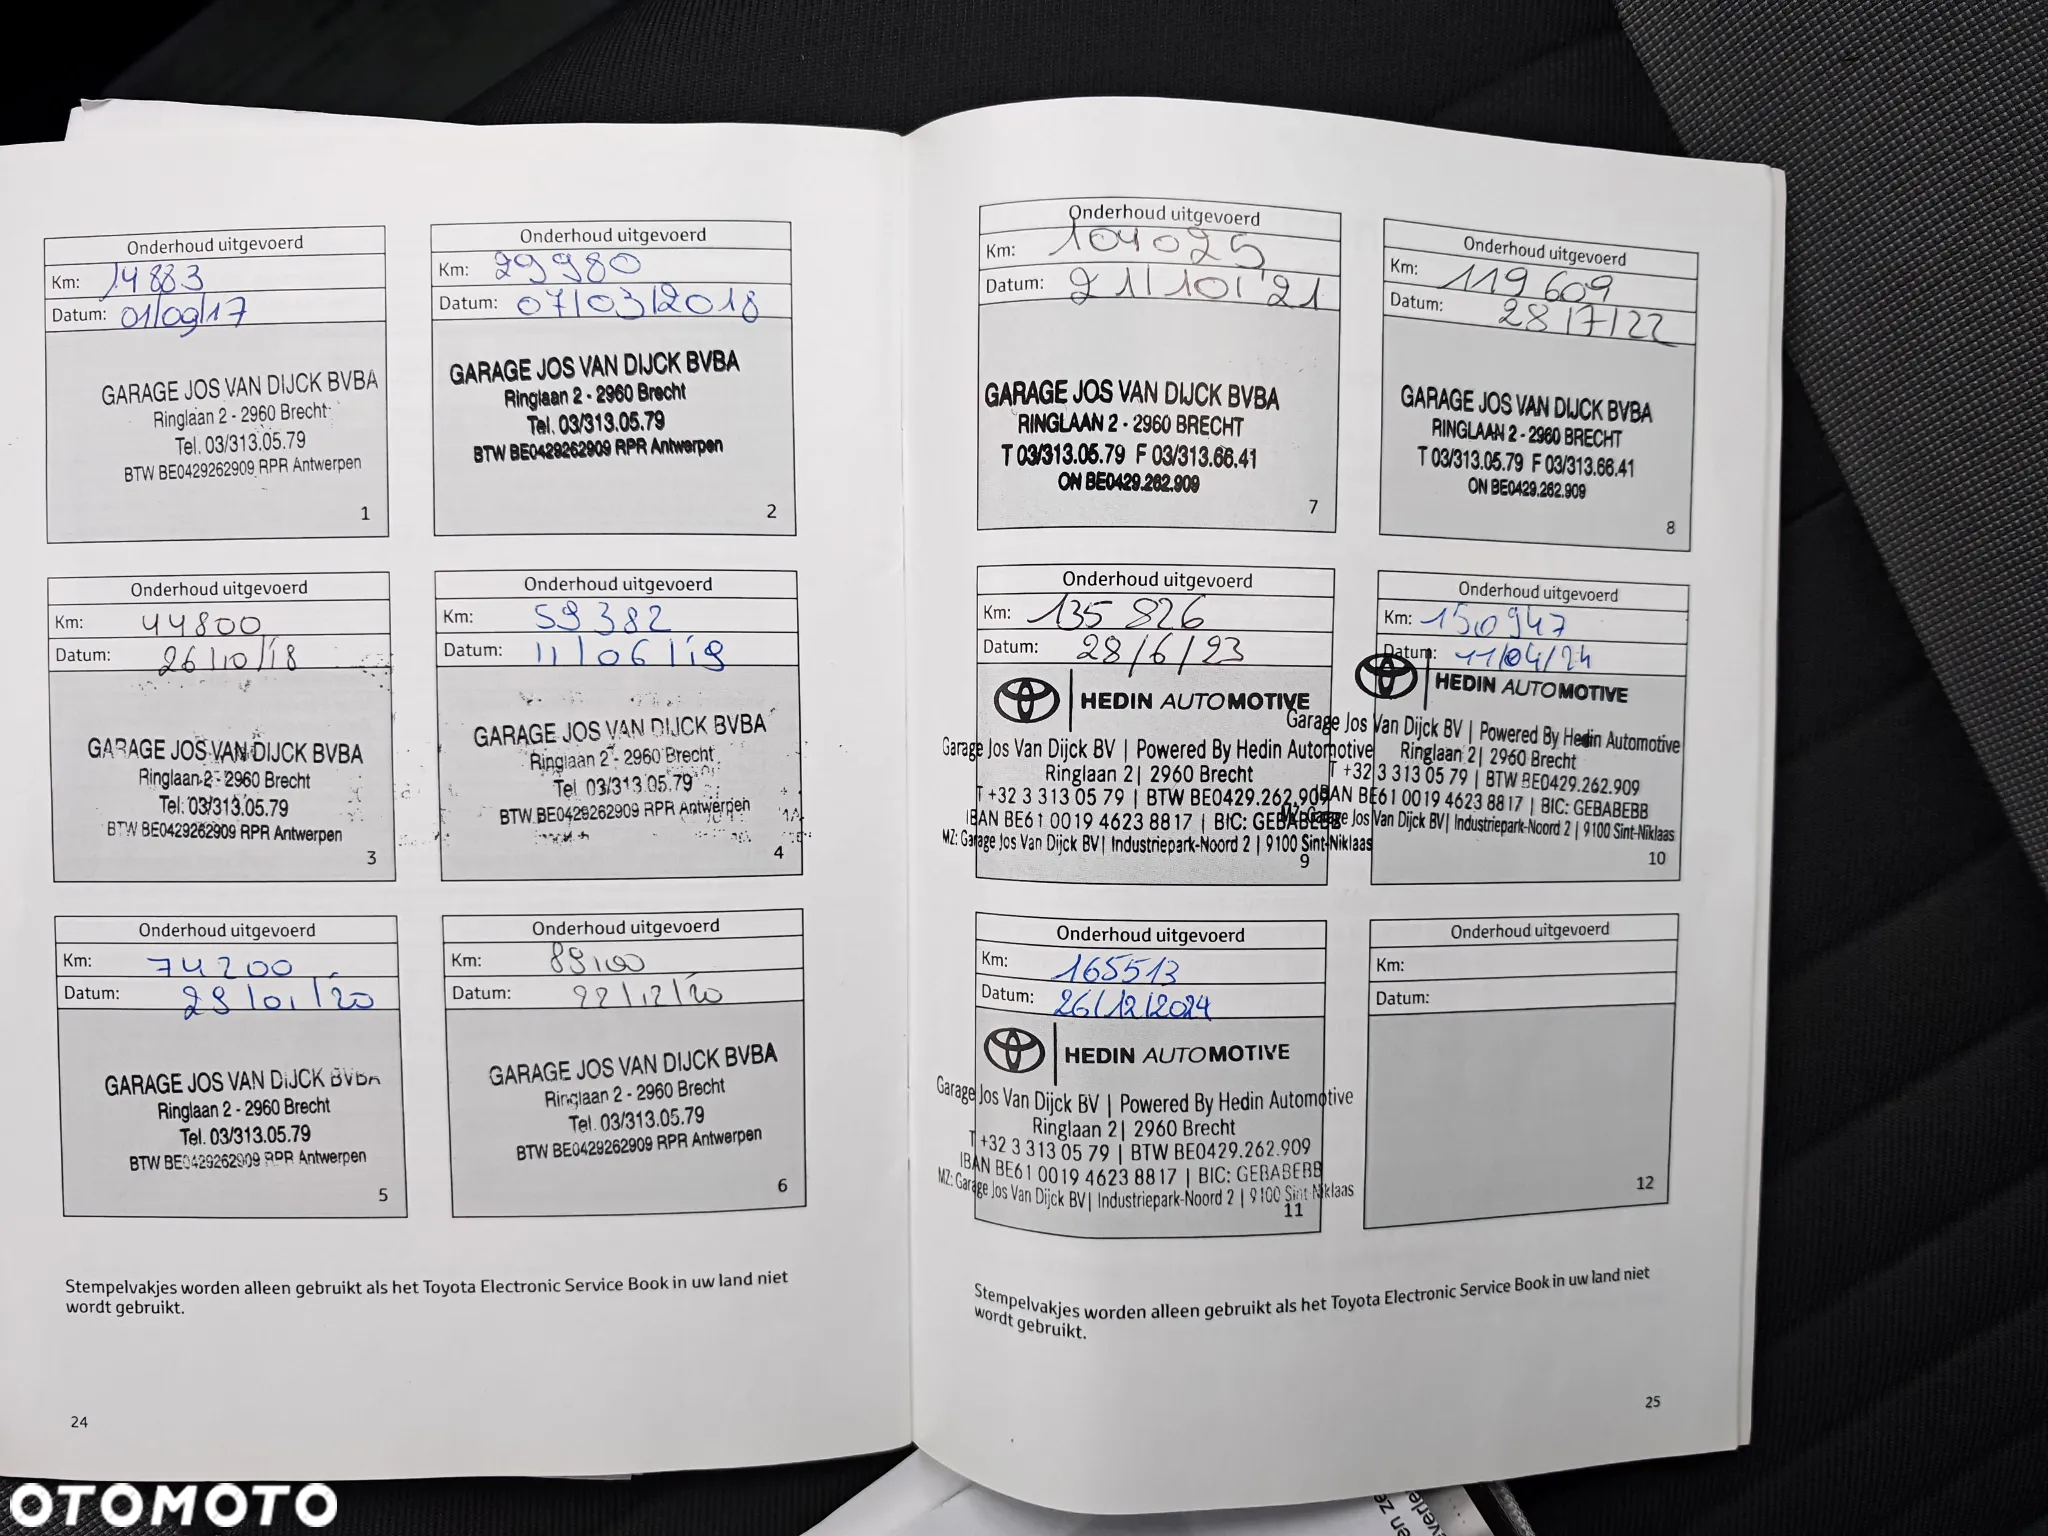 Onderhoud uitgevoerd
Km: 14883
Datum: 01/09/17
GARAGE JOS VAN DIJCK BVBA
Ringlaan 2 - 2960 Brecht
Tel. 03/313.05.79
BTW BE0429262909 RPR Antwerpen
1
Onderhoud uitgevoerd
Km: 29980
Datum: 07/03/2018
GARAGE JOS VAN DIJCK BVBA
Ringlaan 2 - 2960 Brecht
Tel. 03/313.05.79
BTW BE0429262909 RPR Antwerpen
2
Onderhoud uitgevoerd
Km: 44800
Datum: 26/10/18
GARAGE JOS VAN DIJCK BVBA
Ringlaan 2 - 2960 Brecht
Tel. 03/313.05.79
BTW BE0429262909 RPR Antwerpen
3
Onderhoud uitgevoerd
Km: 59382
Datum: 11/06/19
GARAGE JOS VAN DIJCK BVBA
Ringlaan 2 - 2960 Brecht
Tel 03/313.05.79
BTW BE0429262909 RPR Antwerpen
4
Onderhoud uitgevoerd
Km: 74200
Datum: 29/01/20
GARAGE JOS VAN DIJCK BVBA
Ringlaan 2 - 2960 Brecht
Tel. 03/313.05.79
BTW BE0429262909 RPR Antwerpen
5
Onderhoud uitgevoerd
Km: 89100
Datum: 22/12/20
GARAGE JOS VAN DIJCK BVBA
Ringlaan 2 - 2960 Brecht
Tel. 03/313.05.79
BTW BE0429262909 RPR Antwerpen
6
Stempelvakjes worden alleen gebruikt als het Toyota Electronic Service Book in uw land niet
wordt gebruikt.
24
Onderhoud uitgevoerd
Km: 104025
Datum: 21/10/21
GARAGE JOS VAN DIJCK BVBA
RINGLAAN 2 - 2960 BRECHT
T 03/313.05.79 F 03/313.66.41
ON BE0429.262.909
7
Onderhoud uitgevoerd
Km: 119609
Datum: 28/7/22
GARAGE JOS VAN DIJCK BVBA
RINGLAAN 2 - 2960 BRECHT
T 03/313.05.79 F 03/313.66.41
ON BE0429.262.909
8
Onderhoud uitgevoerd
Km: 135826
Datum: 28/6/23
HEDIN AUTOMOTIVE
Garage Jos Van Dijck BV | Powered By Hedin Automotive
Ringlaan 2| 2960 Brecht
T +32 3 313 05 79 | BTW BE0429.262.909
IBAN BE61 0019 4623 8817 | BIC: GEBABEBB
MZ: Garage Jos Van Dijck BV| Industriepark-Noord 2 | 9100 Sint-Niklaas
9
Onderhoud uitgevoerd
Km: 150947
Datum: 11/04/24
HEDIN AUTOMOTIVE
Garage Jos Van Dijck BV | Powered By Hedin Automotive
Ringlaan 2| 2960 Brecht
T +32 3 313 05 79 | BTW BE0429.262.909
IBAN BE61 0019 4623 8817 | BIC: GEBABEBB
MZ: Garage Jos Van Dijck BV| Industriepark-Noord 2 | 9100 Sint-Niklaas
10
Onderhoud uitgevoerd
Km: 165513
Datum: 26/12/2024
HEDIN AUTOMOTIVE
Garage Jos Van Dijck BV | Powered By Hedin Automotive
Ringlaan 2| 2960 Brecht
T +32 3 313 05 79 | BTW BE0429.262.909
IBAN BE61 0019 4623 8817 | BIC: GEBABEBB
MZ: Garage Jos Van Dijck BV| Industriepark-Noord 2 | 9100 Sint-Niklaas
11
Onderhoud uitgevoerd
Km:
Datum:
12
Stempelvakjes worden alleen gebruikt als het Toyota Electronic Service Book in uw land niet
wordt gebruikt.
25
OTOMOTO